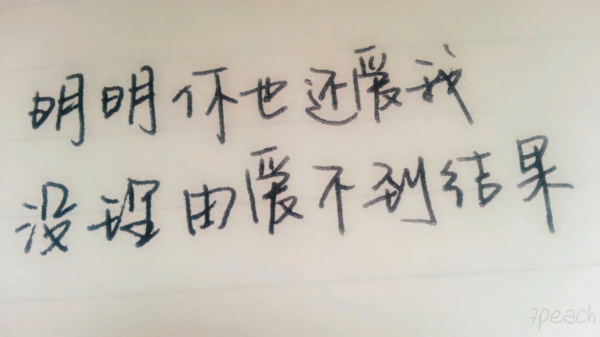 明明你也还爱我
没理由爱不到结果
7peach